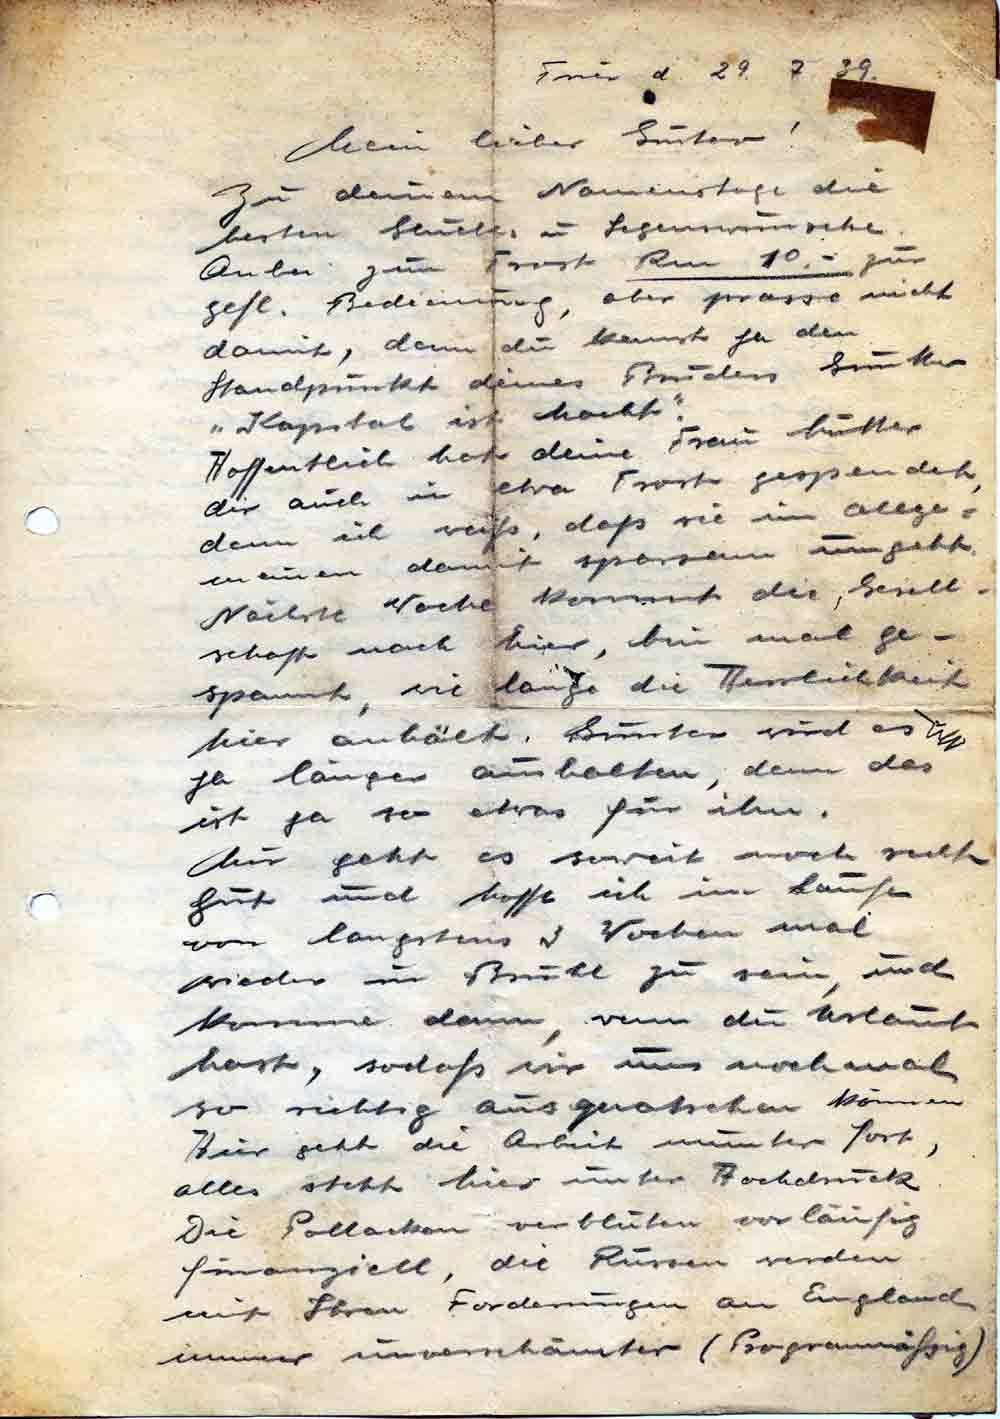 Trier d. 29. 7. 39.
Mein lieber Gustav!
Zu deinem Namenstage die
besten Glücks- u Segenswünsche.
Anbei zum Trost Rm 10.- zur
gefl. Bedienung, aber prasse nicht
damit, denn du kennst ja den
Standpunkt deines Bruders Günther
"Kapital ist Macht".
Hoffentlich hat deine Frau Mutter
dir auch in etwa Trost gespendet,
denn ich weiß, daß sie im allge=
meinen damit sparsam umgeht.
Nächste Woche kommt die Gesell-
schaft nach hier, bin mal ge-
spannt, wie lange die Herrlichkeit
hier anhält. Günter wird es
ja länger aushalten, denn das
ist ja so etwas für ihn.
Mir geht es soweit noch recht
gut und hoffe ich im Laufe
von längstens 3 Wochen mal
wieder in Brühl zu sein, und
komme dann, wenn du Urlaub
hast, sodaß wir uns nochmal
so richtig ausquatschen können
Hier geht die Arbeit munter fort,
alles steht hier unter Hochdruck
Die Pollacken verbluten vorläufig
finanziell, die Russen werden
mit Ihren Forderungen an England
immer unverschämter (Programmäßig)